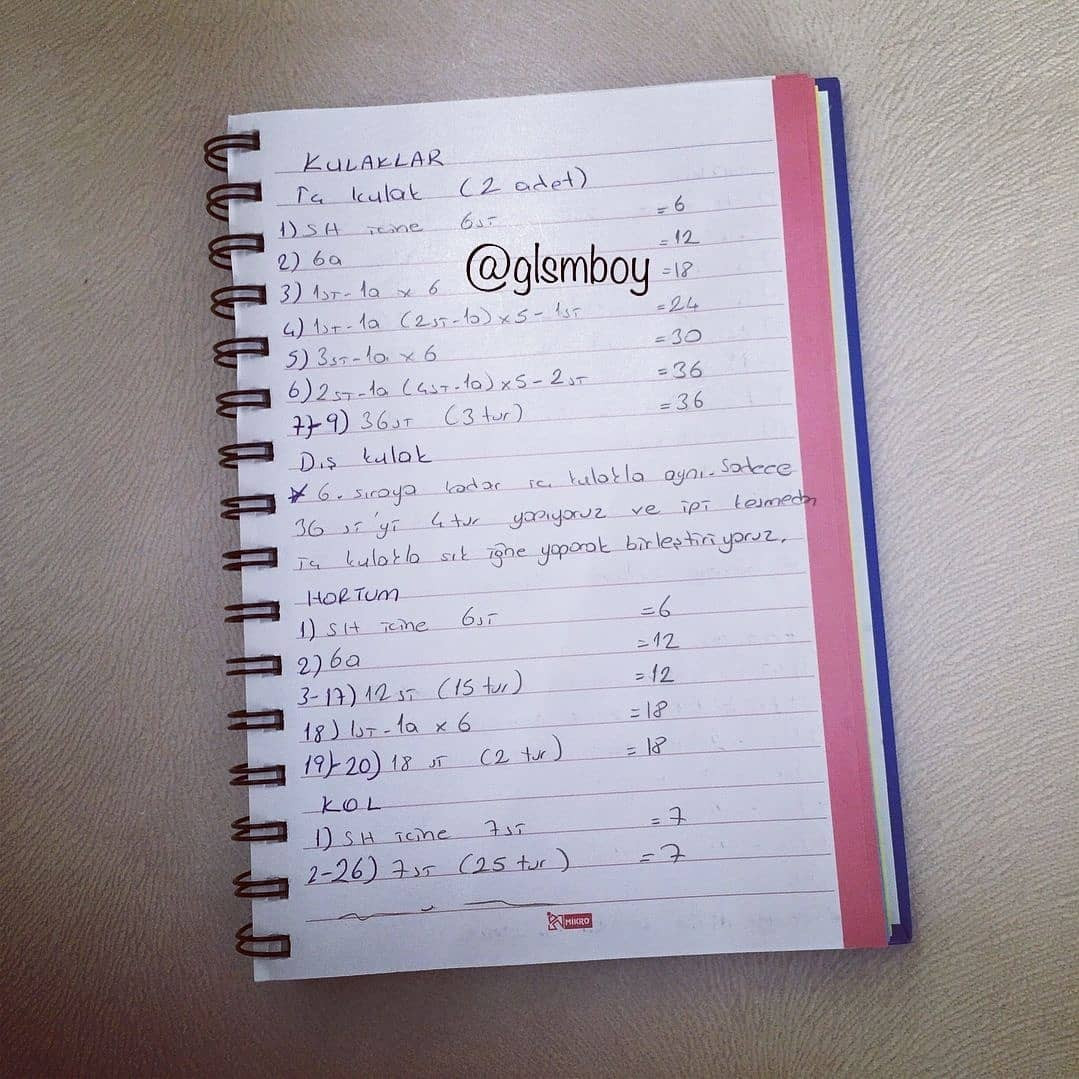 KULAKLAR
İç kulak (2 adet)
1) SH içine 6sı =6
2) 6a =12
@glsmboy
3) 1sı-1a x 6 =18
4) 1sı-1a (2sı-1a)x5-1sı =24
5) 3sı-1a x 6 =30
6) 2sı-1a (4sı-1a)x5-2sı =36
7)-9) 36sı (3 tur) =36
Dış kulak
* 6. sıraya kadar iç kulakla aynı. Sadece
36 sı'yi 4 tur yapıyoruz ve ipi kesmeden
iç kulakla sık iğne yaparak birleştiriyoruz.
HORTUM
1) SH içine 6sı =6
2) 6a =12
3-17) 12 sı (15 tur) =12
18) 1sı-1a x 6 =18
19)-20) 18 sı (2 tur) =18
KOL
1) SH içine 7sı =7
2-26) 7sı (25 tur) =7
MIKRO